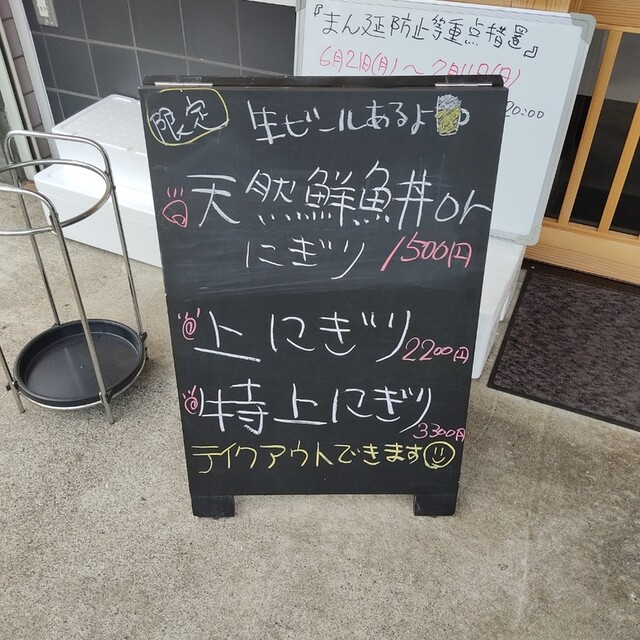 『まん延防止等重点措置』
6月21日(月)～7月11日(日)
20:00
限定 生ビールあるよ
天然鮮魚丼or
にぎり 1500円
上にぎり 2200円
特上にぎり 3300円
テイクアウトできます